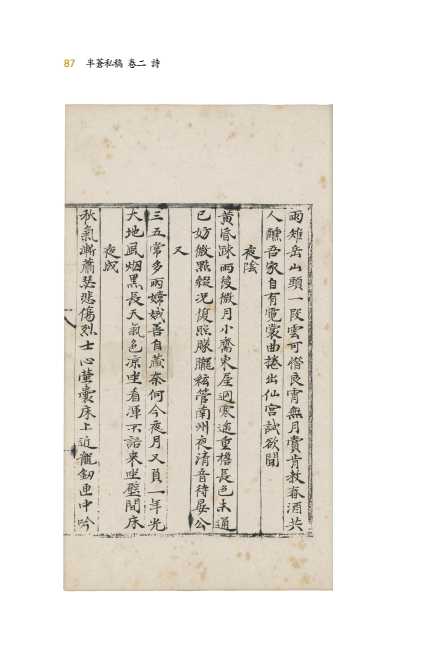 87 半蒼私稿 卷二 詩
雨雉岳山頭一段雲可惜良宵無月賞肯教春酒共
人醺吾家自有霓裳曲捲出仙宮試欲聞
夜陰
黃昏踈雨後微月小喬東屋逈寒遙重檐長色未通
已妨微點綴況復照朦朧絃管南州夜清音待屬公
又
三五常多雨嫦娥吾自藏奈何今夜月又負一年光
大地風烟黑長天氣色凉坐看渾不語來坐壁間床
夜成
秋氣漸蕭瑟悲傷烈士心螢囊床上近龍劒匣中吟